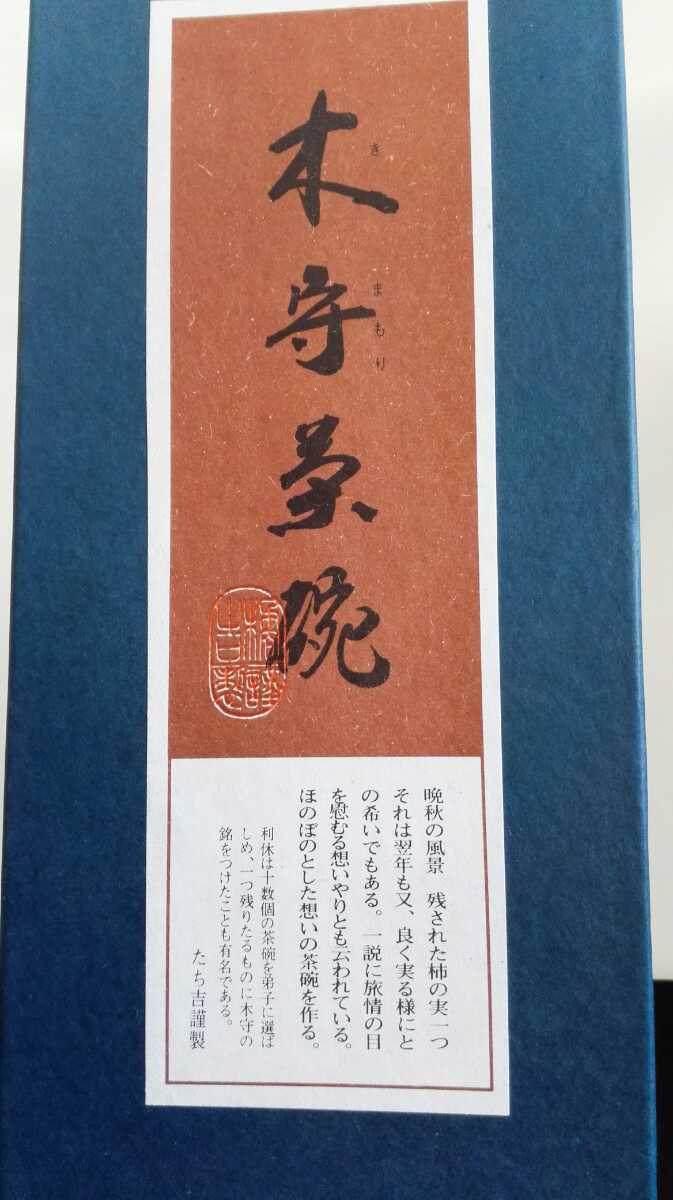 木守茶碗
きまもり
晩秋の風景　残された柿の実一つ
それは翌年も又、良く実る様にと
の希いでもある。一説に旅情の目
を慰むる想いやりとも云われている。
ほのぼのとした想いの茶碗を作る。
利休は十数個の茶碗を弟子に選ば
しめ、一つ残りたるものに木守の
銘をつけたことも有名である。
たち吉謹製